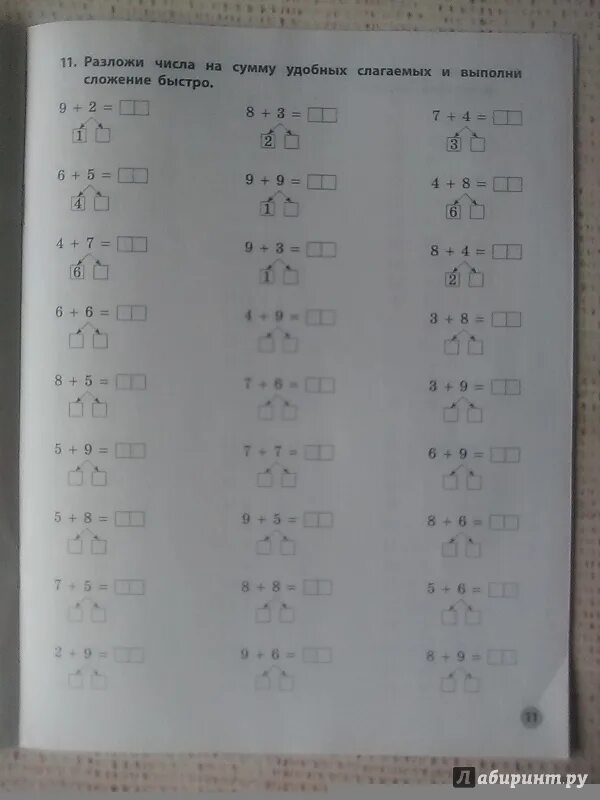 11. Разложи числа на сумму удобных слагаемых и выполни
сложение быстро.
9 + 2 = 8 + 3 = 7 + 4 =
1 2 3
6 + 5 = 9 + 9 = 4 + 8 =
4 1 6
4 + 7 = 9 + 3 = 8 + 4 =
6 1 2
6 + 6 = 4 + 9 = 3 + 8 =
8 + 5 = 7 + 6 = 3 + 9 =
5 + 9 = 7 + 7 = 6 + 9 =
5 + 8 = 9 + 5 = 8 + 6 =
7 + 5 = 8 + 8 = 5 + 6 =
2 + 9 = 9 + 6 = 8 + 9 =
11
Лабиринт.ру